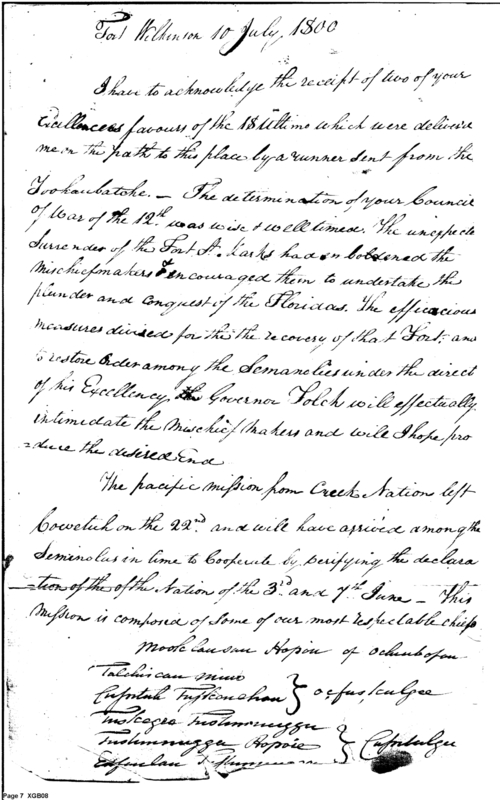 Fort Wilkinson 10 July, 1800
I have to acknowledge the receipt of two of your
Excellencees favours of the 18 Ultimo which were deliverd
me in the path to this place by a runner sent from the
Tookaubatche. — The determination of your Council
of War of the 12th was wise & well timed. The unexpecte
Surrender of the Fort St. Marks had emboldened the
Mischiefmakers & encouraged them to undertake the
plunder and conquest of the Floridas. The efficacious
measures divised for the the recovery of that Fort, and
to restore Order among the Semanolies under the direct
of his Excellency, the Governor Folch will effectually
intimidate the Mischief Makers and will I hope pro
=duce the desired End
The pacific mission from Creek Nation left
Cowetuh on the 22nd. and will have arrived among the
Seminolus in time to Cooperate by Verifying the declara
=tion of the of the Nation of the 3d. and 7th June — This
Mission is composed of some of our most respectable chiefs
Hopoie of
Talchiscau micco
Cussetuh } 
Tuskegee Tustunnuggu
Tustunnuggu Hopoie }
&
Page 7 XGB08